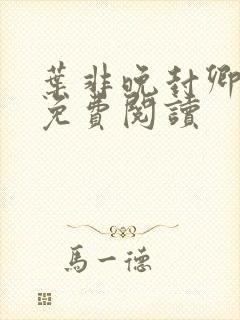 葉非晚封卿
免費閱讀
馬一德